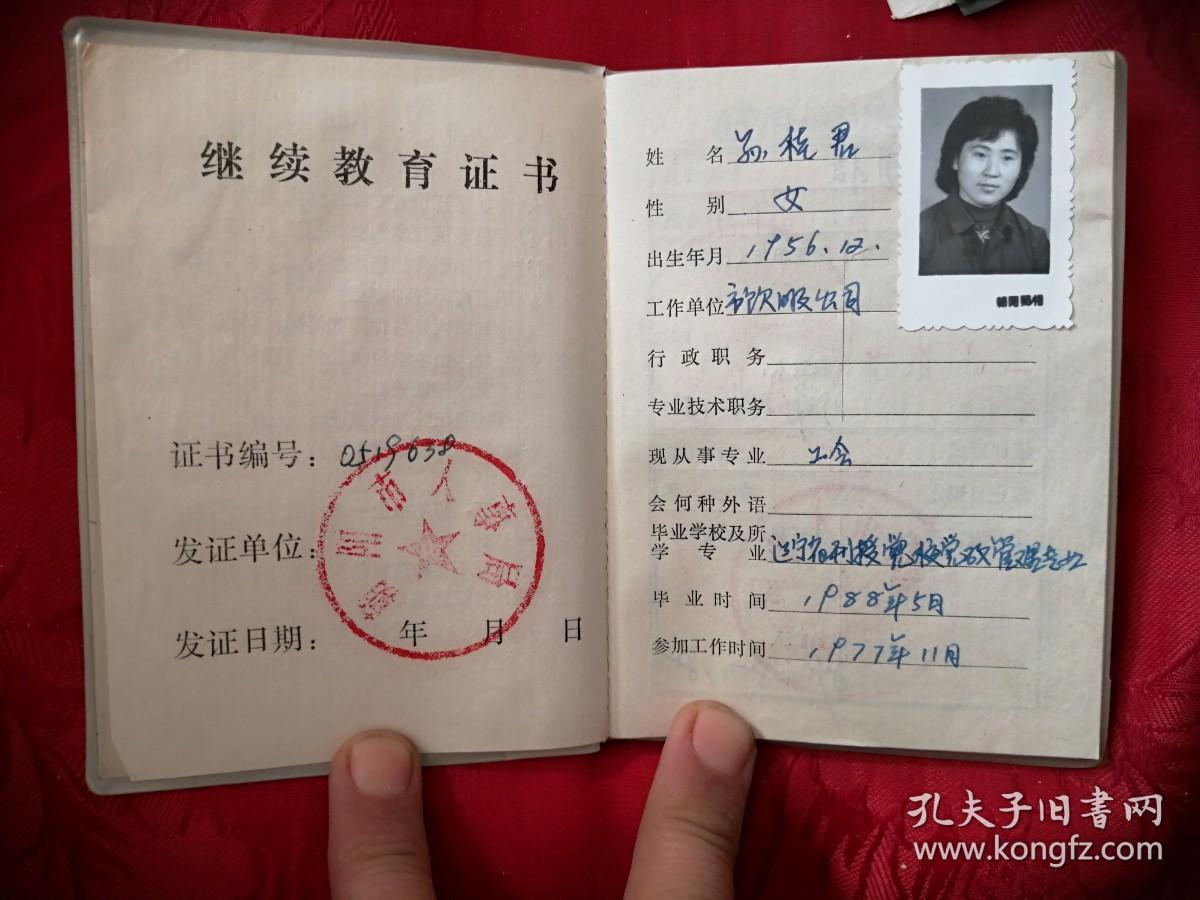 继续教育证书
证书编号：0519638
发证单位：
市人事局
发证日期： 年 月 日
姓 名 孙桂君
性 别 女
出生年月 1956.12.
工作单位 市饮服公司
行政职务
专业技术职务
现从事专业 工会
会何种外语
毕业学校及所
学 专 业 辽宁省函授党校党政管理专业
毕业时间 1988年5月
参加工作时间 1977年11月
朝阳照相
孔夫子旧書网
www.kongfz.com